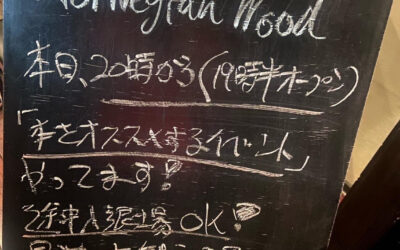 Norwegian Wood
本日、20時頃から(19時半オープン)
「本をオススメするイベント」
やってます!
途中入退場OK!